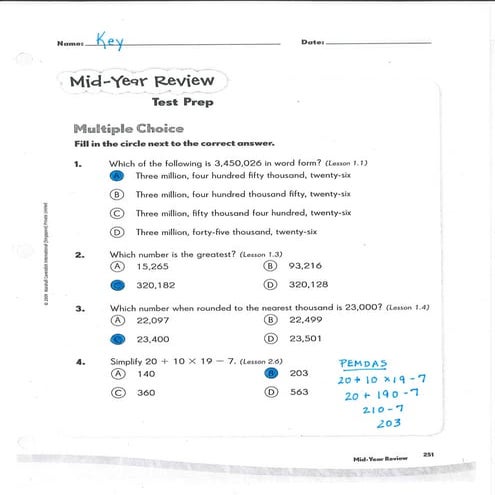 Name: Key Date:
Mid-Year Review
Test Prep
Multiple Choice
Fill in the circle next to the correct answer.
1. Which of the following is 3,450,026 in word form? (Lesson 1.1)
A Three million, four hundred fifty thousand, twenty-six
B Three million, four hundred thousand fifty, twenty-six
C Three million, fifty thousand four hundred, twenty-six
D Three million, forty-five thousand, twenty-six
2. Which number is the greatest? (Lesson 1.3)
A 15,265 B 93,216
C 320,182 D 320,128
3. Which number when rounded to the nearest thousand is 23,000? (Lesson 1.4)
A 22,097 B 22,499
C 23,400 D 23,501
4. Simplify 20 + 10 × 19 − 7. (Lesson 2.6)
A 140 B 203
C 360 D 563
PEMDAS
20 + 10 × 19 - 7
20 + 190 - 7
210 - 7
203
© 2009 Marshall Cavendish International (Singapore) Private Limited
Mid-Year Review 251